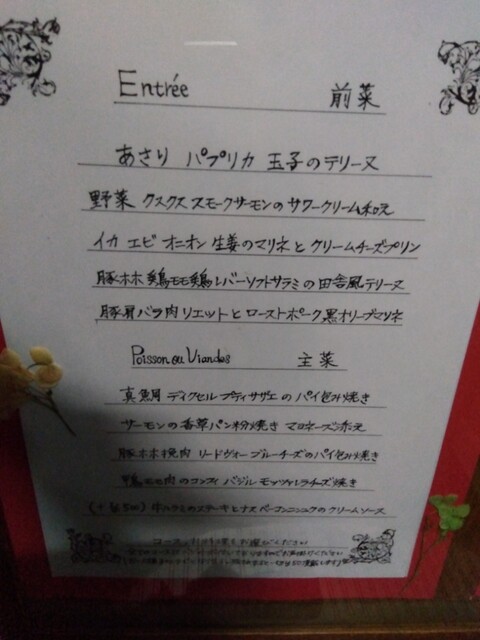 Entrée 前菜
あさり パプリカ 玉子のテリーヌ
野菜 クスクス スモークサーモンの サワークリーム和え
イカ エビ オニオン 生姜のマリネと クリームチーズプリン
豚ホホ 鶏モモ 鶏レバー ソフトサラミの 田舎風テリーヌ
豚肩バラ肉 リエットと ローストポーク 黒オリーブマリネ
Poisson ou Viandes 主菜
真鯛 デュクセル プティサザエ の パイ包み焼き
サーモンの 香草パン粉焼き マヨネーズ添え
豚ホホ挽肉 リードヴォー ブルーチーズのパイ包み焼き
鴨モモ肉 のコンフィ バジル モッツァレラチーズ焼き
牛ハラミのステーキとナス ベーコンニンニクのクリームソース